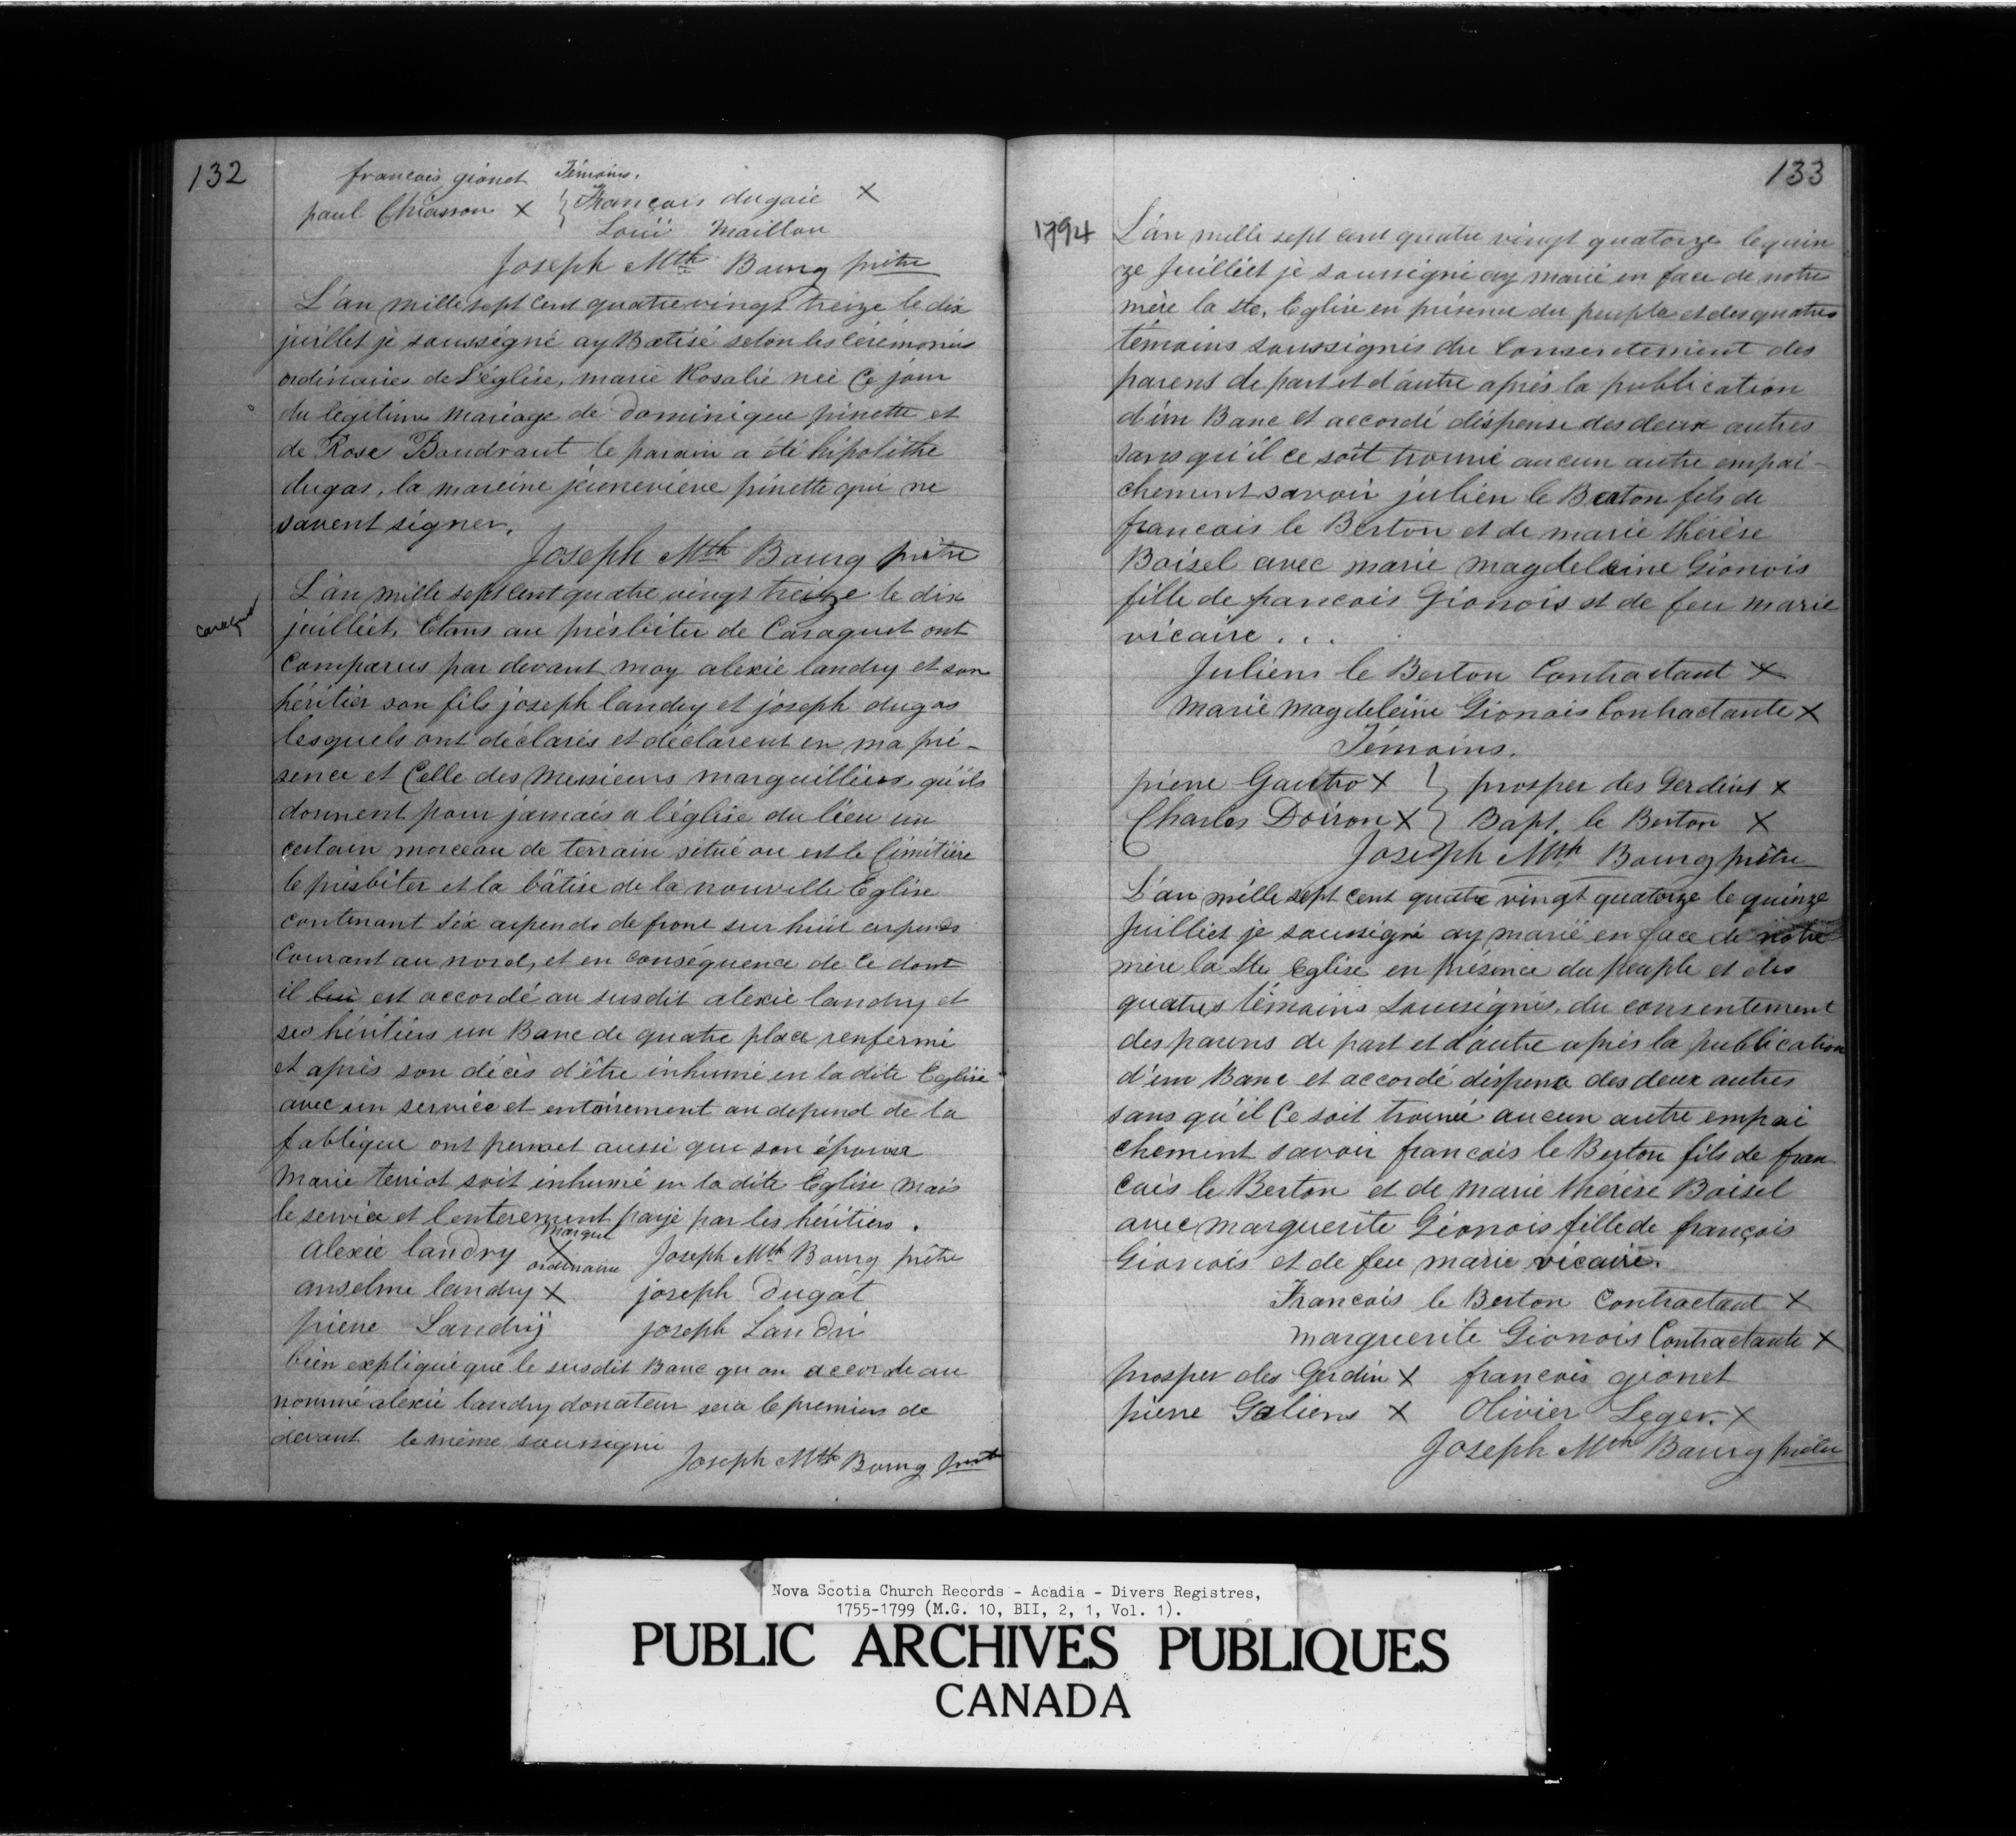 132
francois gionet Témoins.
paul Chiasson × } François dugaie ×
Loüi Maillou
Joseph Mth Bourg prêtre
L'an mille sept Cent quatre vingt treize le dix
juillet je soussigné ay Batisé selon les cérémonies
ordinaires de L'église, marie Rosalie neé Ce jour
du legitime mariage de Dominique pinette et
de Rose Baudraut le parain a été hipolithe
dugas, la mareine jeuneviene pinette qui ne
savent signer.
Joseph Mth Bourg prêtre
Caraquet
L'an mille sept Cent quatre vingt treize le dix
juilliet, Etans au présbiter de Caraquet ont
Comparus par devant moy alexie landry et son
héritier son fils joseph landry et joseph dugas
lesquels ont déclarés et déclarent en ma pré-
sence et Celle des Messieurs marguilliers qu'ils
donnent pour jamais a l'église du lieu un
certain morceau de terrain situé ou est le Cimitière
le présbiter et la bâtise de la nouvelle Eglise
contenant Six arpends de front sur huit arpends
Courant au nord, et en conséquence de Ce dont
il lui est accordé au susdit alexie landry et
ses héritiers un Banc de quatre place renfermé
et après son décès d'être inhumé en la dite Eglise
avec un service et entairement au depend de la
fablique ont permet aussi que son épouse
Marie terriot soit inhumé en la dite Eglise mais
le service et l'enterement payé par les héritiers.
Marque
Alexie landry × ordinaire Joseph Mth Bourg prêtre
anselme landry × joseph Dugat
pierre Landrÿ joseph Landri
bien expliqué que le susdit Banc qu on accorde au
nommé alexie landry donateur sera le premier de
devant le même soussigné
Joseph Mth Bourg prêtre
133
1794
L'an mille sept cent quatre vingt quatorze le quin
ze Juilliet je soussigné ay marié en face de notre
mère la Ste. Eglise en présence du peuple et des quatres
témoins soussignés du Consentement des
parens de part et d'autre après la publication
d'un Banc et accordé dispense des deux autres
sans qu'il ce soit trouvé aucun autre empai-
chement savoir julien le Berton fils de
francois le Berton et de marie thérèse
Boisel avec marie magdeleine Gionois
fille de francois Gionois et de feu marie
vicaire...
Juliens le Berton Contractant ×
Marie Magdeleine Gionois Contractante ×
Témoins.
pierre Gautro × } prosper des Gerdins ×
Charles Doiron × } Bapt. le Berton ×
Joseph Mth Bourg prêtre
L'an mille sept cent quatre vingt quatorze le quinze
Juilliet je soussigné ay marié en face de notre
mère la Ste Eglise en présence du peuple et des
quatres témoins Soussignés. du consentement
des parens de part et d'autre après la publication
d'un Banc et accordé dispence des deux autres
sans qu'il Ce soit trouvé aucun autre empai
chement savoir francois le Berton fils de fran
cais le Berton et de Marie thérèse Boisel
avec marguerite Gionois fille de françois
Gionois et de feu marie vicaire.
Francois le Berton Contractant ×
marguerite Gionois Contractante ×
prosper des Gerdin × francois gionet
pierre Galiens × Olivier Leger. ×
Joseph Mth Bourg prêtre
Nova Scotia Church Records - Acadia - Divers Registres,
1755-1799 (M.G. 10, BII, 2, 1, Vol. 1).
PUBLIC ARCHIVES PUBLIQUES
CANADA